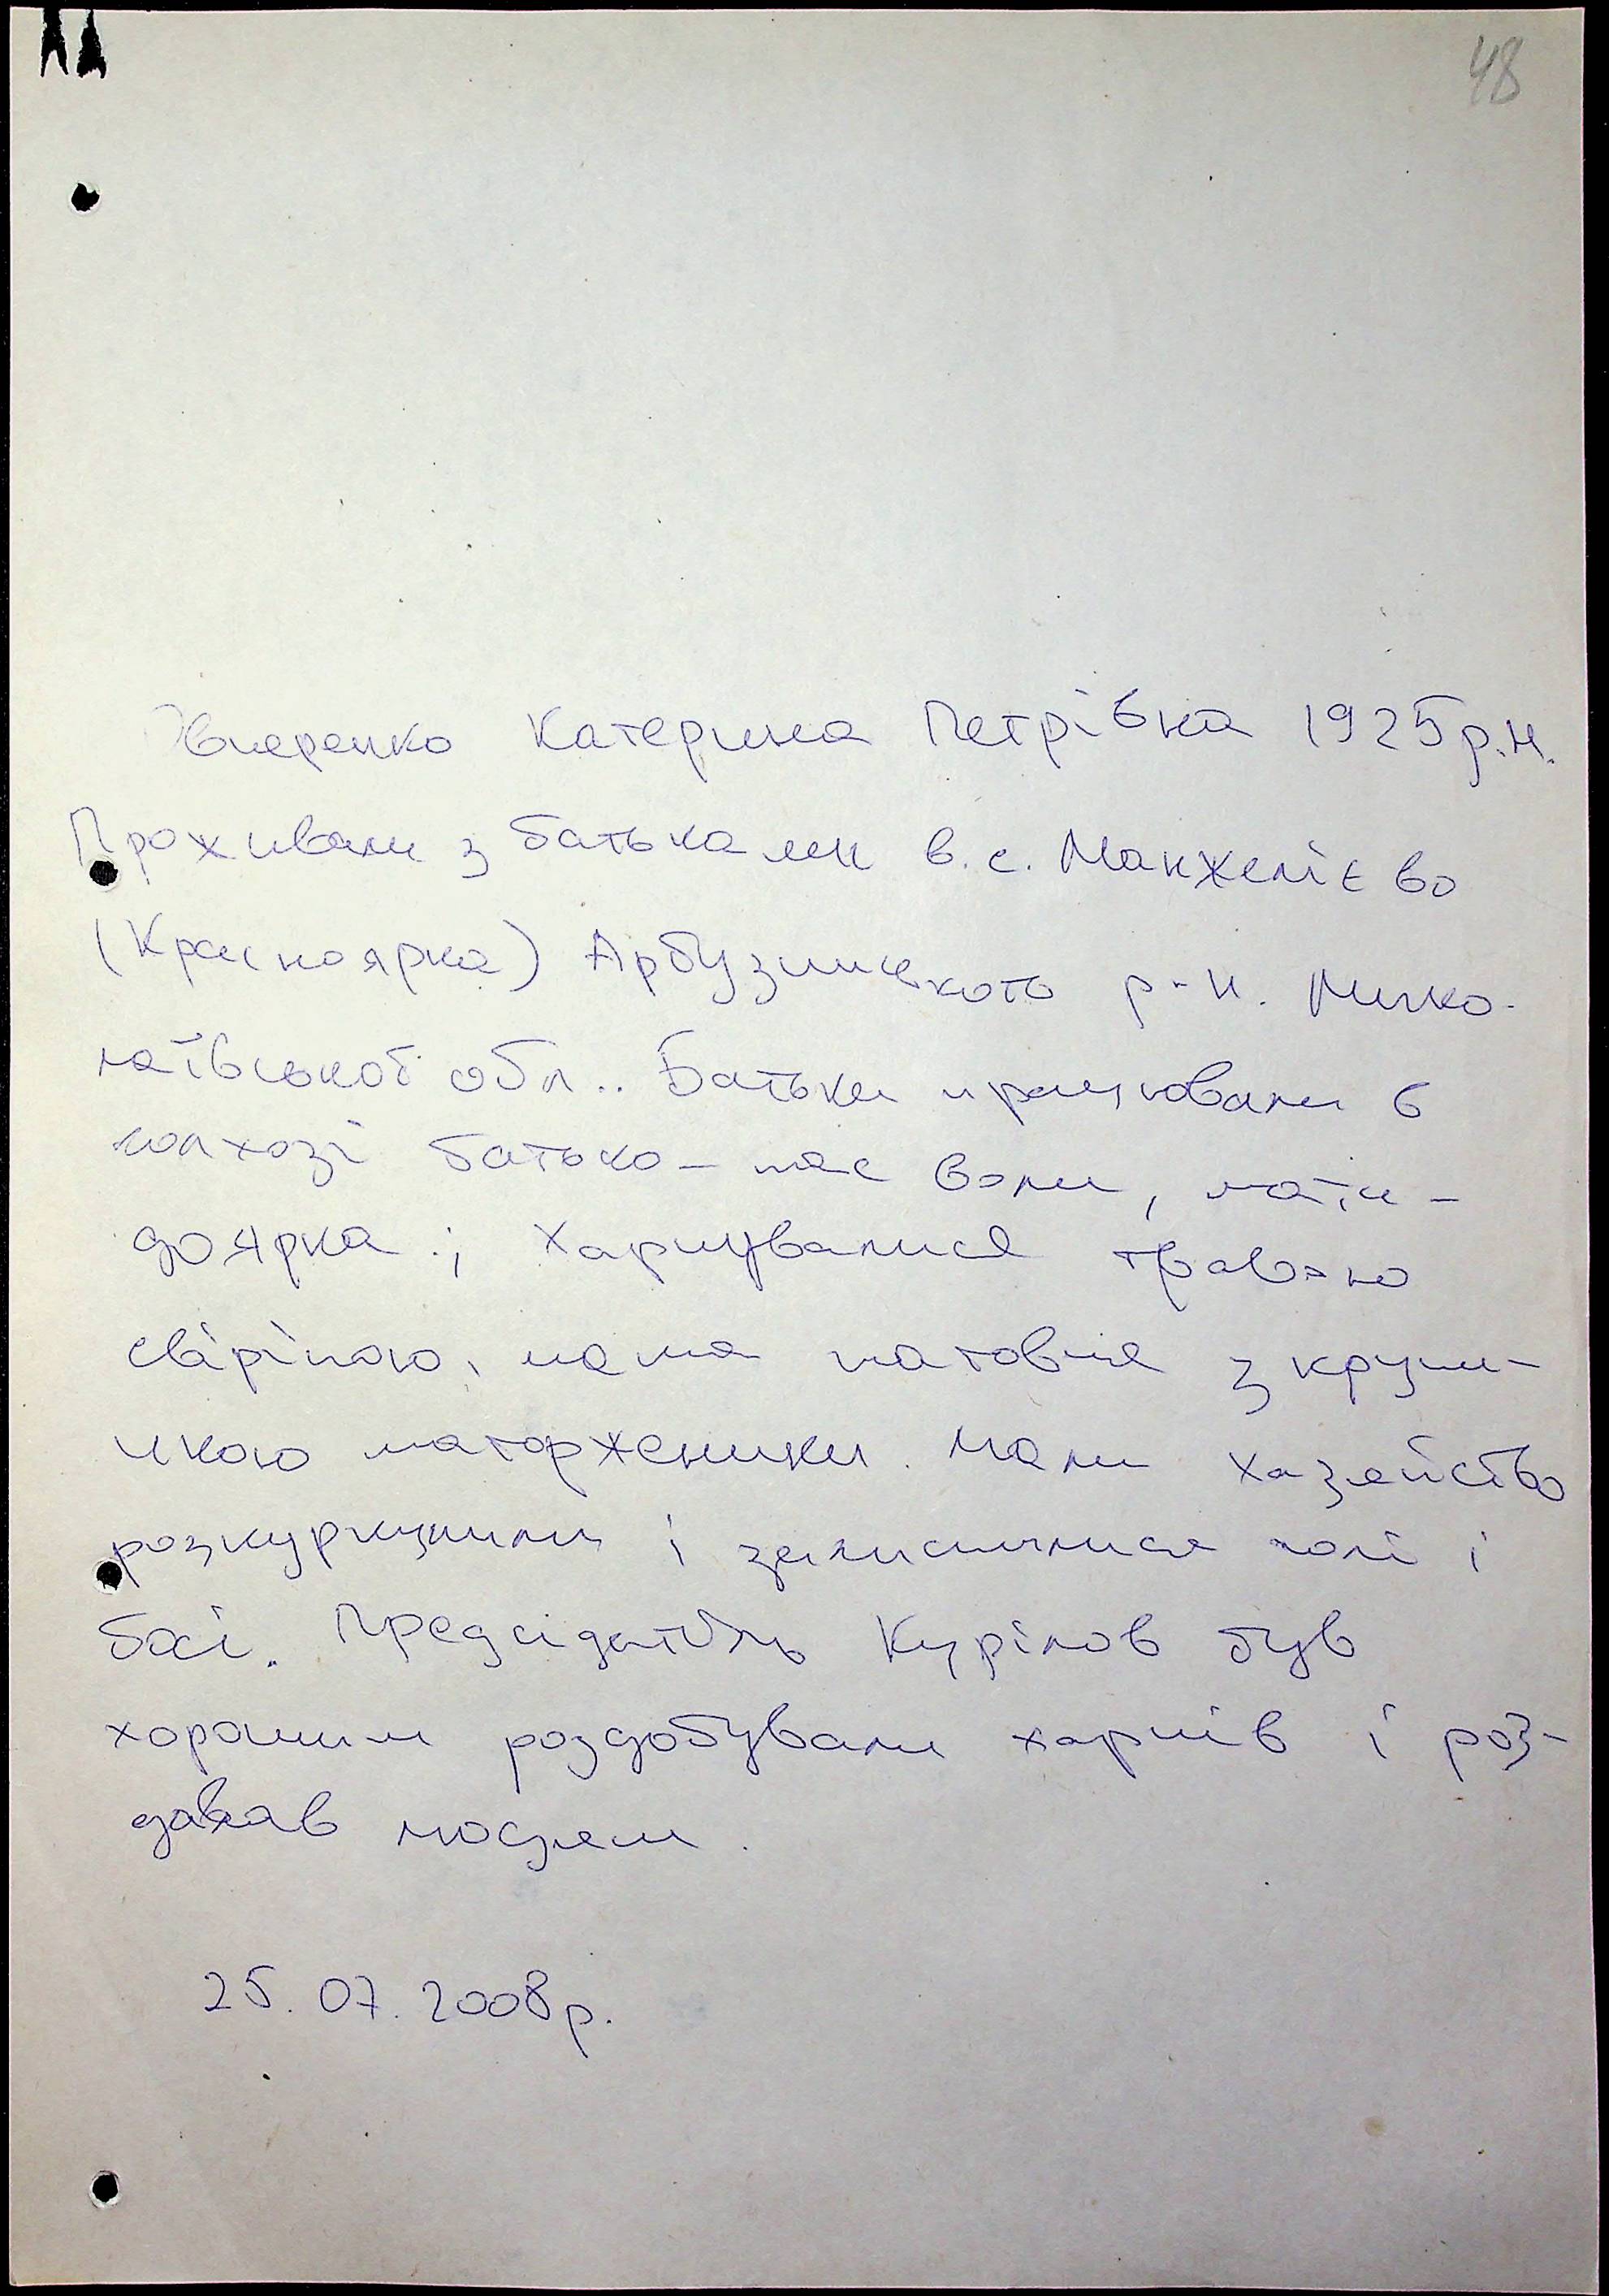 48
Катерина Петрівна 1925р.н.
Проживали з батьками в.с. Манжелієво
(Красноярка) Арбузинського р-н. Мико-
лаївської обл.. Батьки працювали в
колхозі батько - пас воли, мати -
доярка ; харчувалися травою
свіріпою, мама з крупи-
чкою маторженики. Мали хазяйство
розкуркулили і залишилися голі і
босі. Предсідатіль Курілов був
хорошим роздобували харчів і роз-
давав людям.
25.07.2008р.